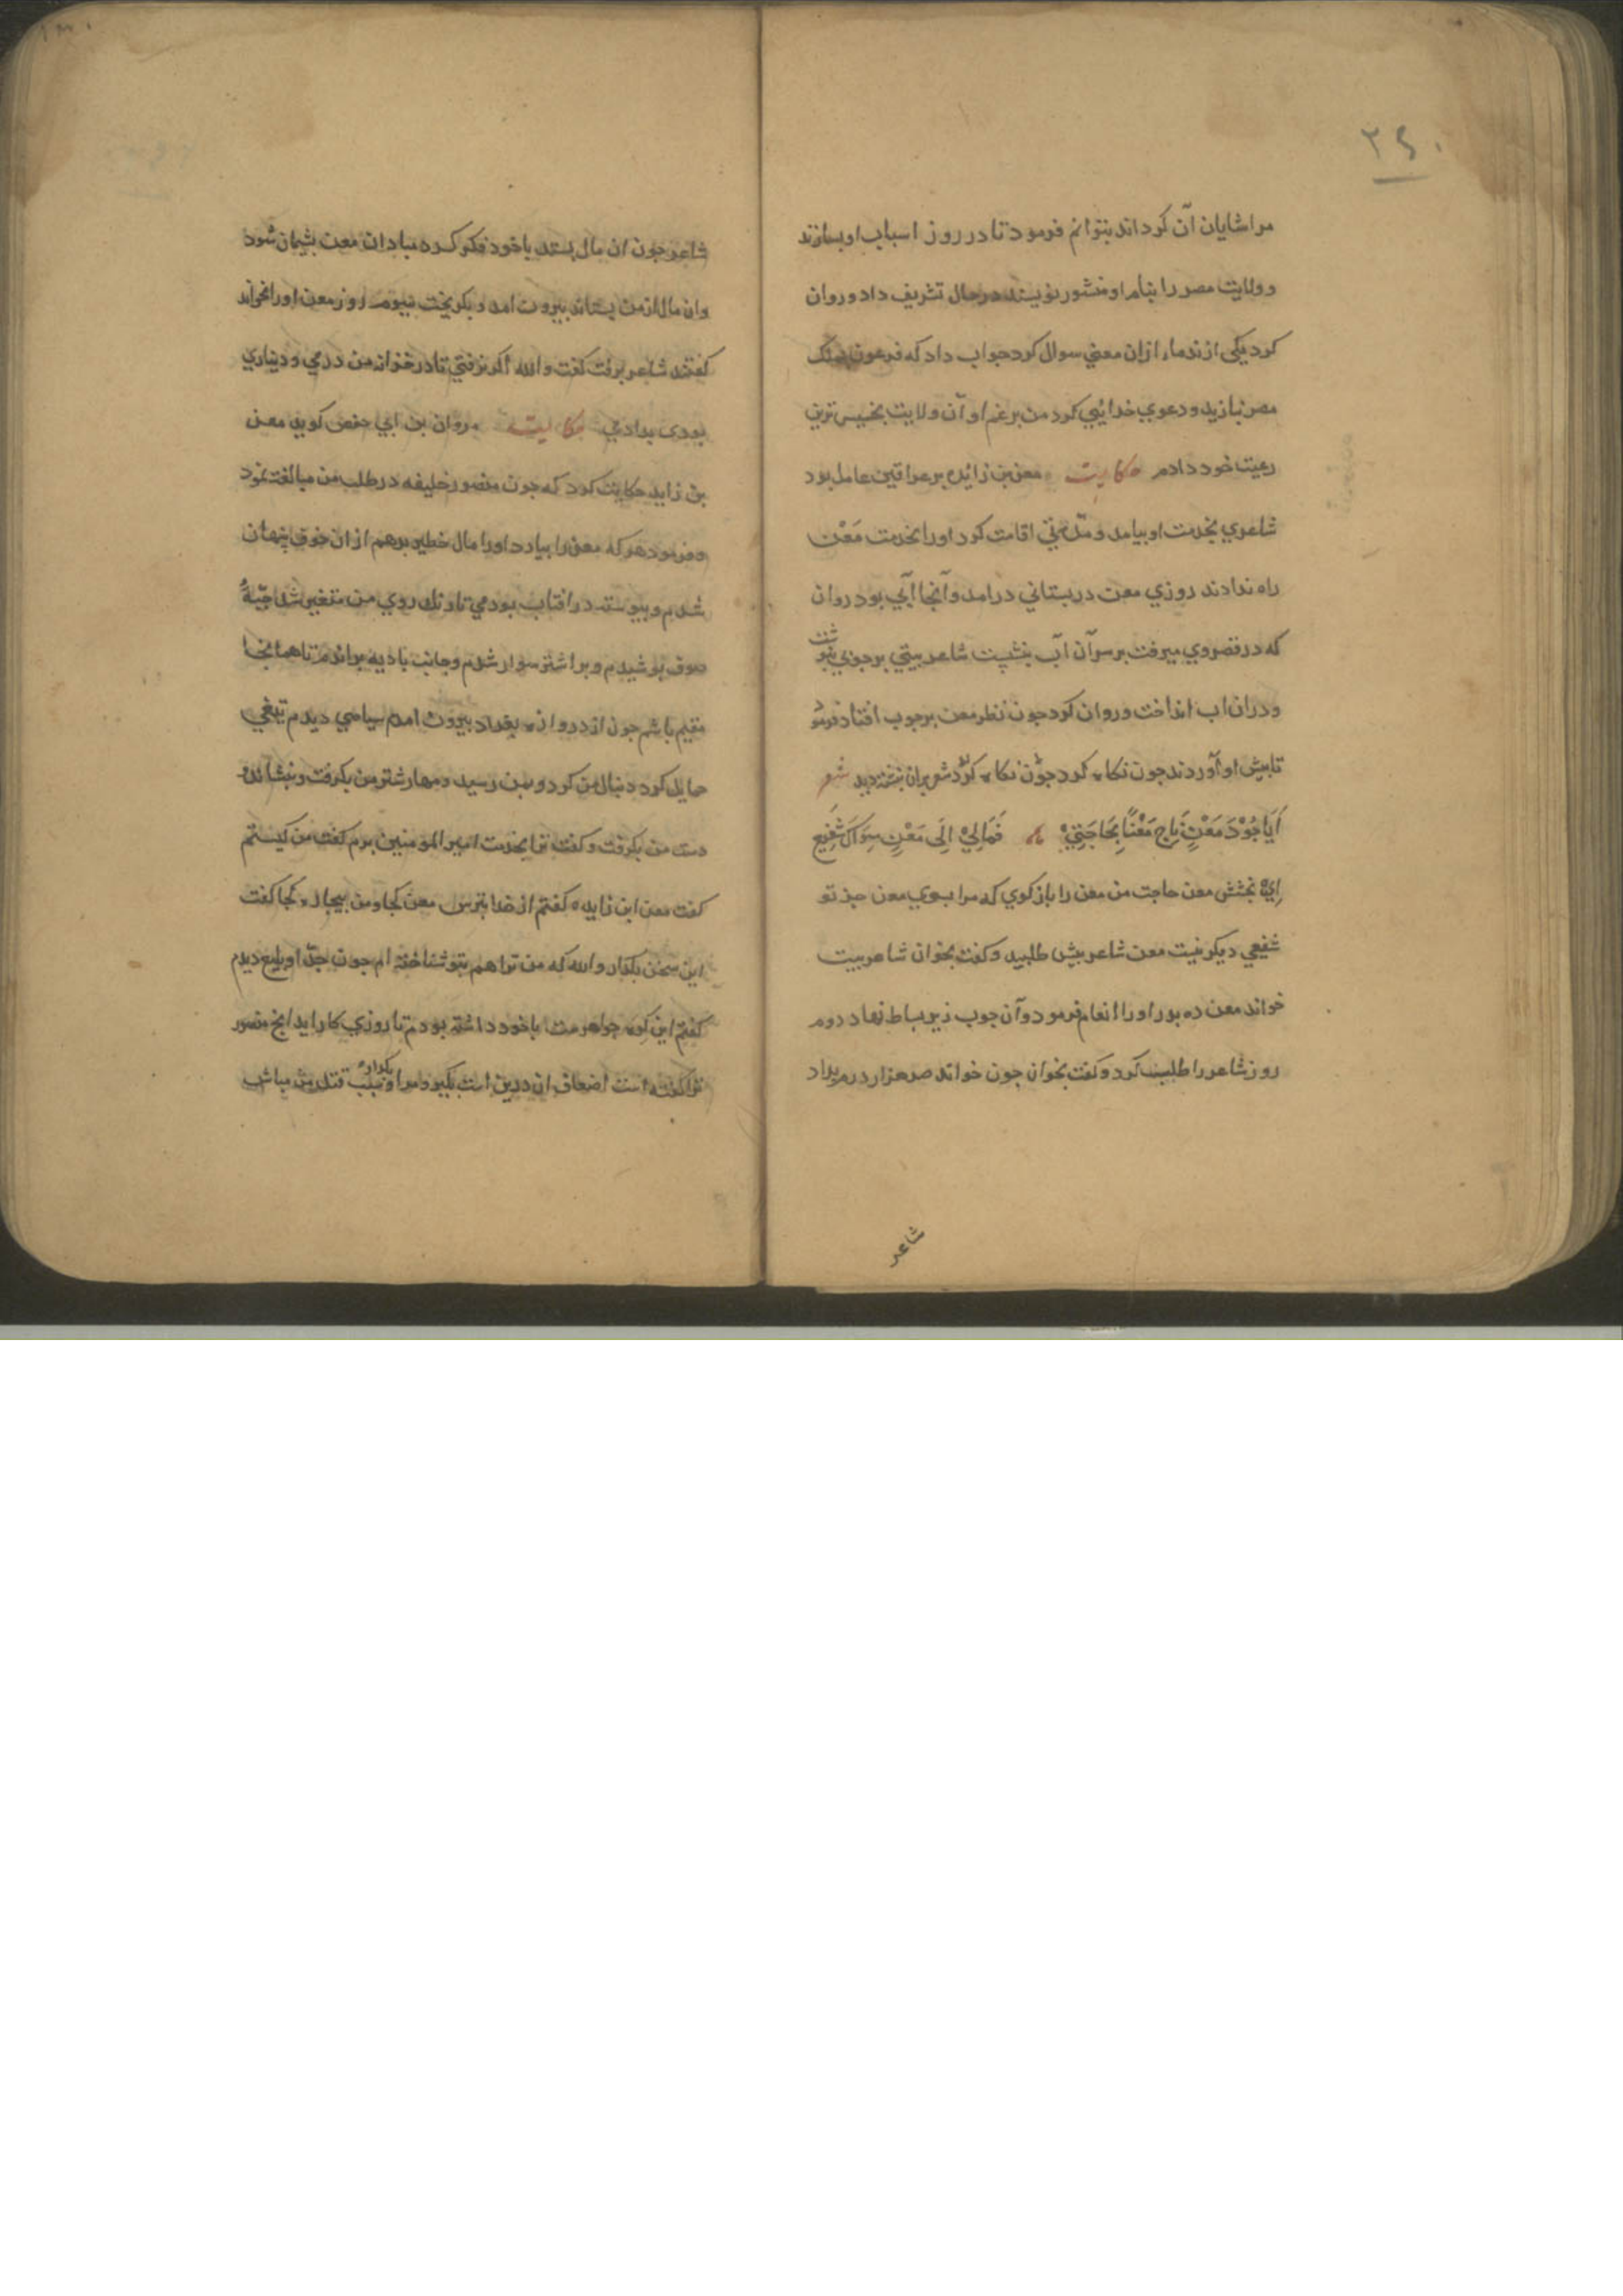 ۲۴۰
مرا شایان آن کرداند بتوانم فرمود تا در روز اسباب او بسازند
و ولایت مصر را بنام او منشور نویسند در حال تشریف داد و روان
کرد یکی از ندماء ازان معنی سوال کرد جواب داد که فرعون بملک
مصر بنازید و دعوی خدایی کرد من برغم او آن ولایت بخسیس ترین
رعیت خود دادم حکایت معن بن زایده بر عراقین عامل بود
شاعری بخدمت او بیامد و مدتی اقامت کرد او را بخدمت مَعْن
راه ندادند روزی معن در بستانی درامد و آنجا آبی بود روان
که در قصر وی میرفت بر سر آن آب بنشست شاعر بیتی بر جوبی بنوشت
و دران اب انداخت و روان کرد جون نظر معن بر جوب افتاد فرمود
تا بیش او آوردند جون نکاه کرد شعر بران نبشته دید شعر
اَیَا جُوْدَ مَعْنٍ نَاجِ مَعْنًا بِحَاجَتِیْ فَمَالِیْ اِلَی مَعْنٍ سِوَاکَ شَفِیع
ای بخشش معن حاجت من معن را باز کوی که مرا بسوی معن جز تو
شفیعی دیکر نیست معن شاعر بیش طلبید و کفت بخوان شاعر بیت
خواند معن ده بدره او را انعام فرمود و آن جوب زیر بساط نهاد دوم
روز شاعر را طلب کرد و کفت بخوان جون خواند صد هزار درم بداد
شاعر
شاعر جون ان مال بستد با خود فکر کرد مبادا ان معن بشیمان شود
و ان مال از من بستاند بیرون امد و بکریخت سیوم روز معن او را بخواند
کفتند شاعر برفت کفت والله اکر نرفتی تا در خزانه من درمی و دیناری
بودی بدادمی حکایت مروان بن ابی حفص کوید معن
بن زایده حکایت کرد که جون منصور خلیفه در طلب من مبالغت نمود
و فرمود هر که معن را بیارد او را مال خطیر بدهم از ان خوف پنهان
شدم و بیوسته در افتاب بودمی تا رنک روی من متغیر شد جبّهٔ
صوف بوشیدم و بر اشتر سوار شدم و جانب بادیه براندم تا همانجا
مقیم باشم جون از دروازه بغداد بیرون امدم سیاهی دیدم تیغی
حمایل کرد دنبال من کرد و بمن رسید و مهار شتر من بکرفت و بنشاند
دست من بکرفت و کفت ترا بخدمت امیر المومنین برم کفت من کیستم
کفت معن ابن زایده کفتم از خدا بترس معن کجا و من بیچاره کجا کفت
این سخن بکذار والله که من ترا هم بتو شناخته ام جون جدّ او بلیغ دیدم
کفتم این کوه جواهرست با خود داشته بودم تا روزی کار اید انج منصور
ترا کفته است اضعاف ان درین است بکیر و مرا بکذار و سبب قتل من مباش